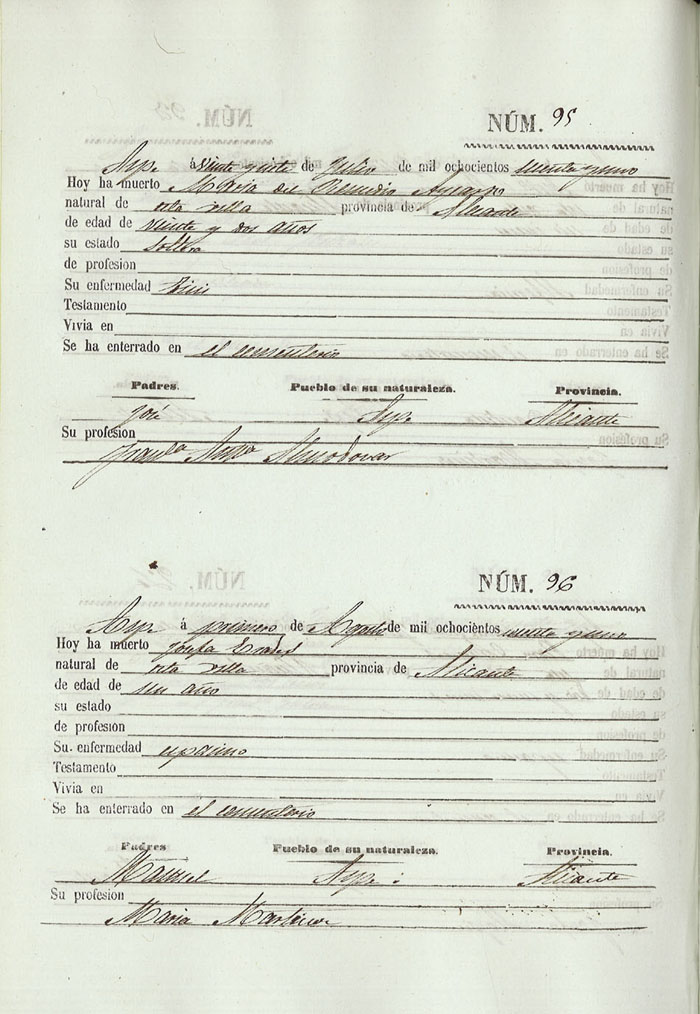 NÚM. 95
Aspe á veinte y siete de Julio de mil ochocientos
Hoy ha muerto Maria del Remedio
natural de esta villa provincia de Alicante
de edad de veinte y dos años
su estado soltera
de profesion
Su enfermedad tisis
Testamento
Vivia en
Se ha enterrado en el cementerio
Padres. Pueblo de su naturaleza. Provincia.
José Aspe Alicante
Su profesion
Almodovar
NÚM. 96
Aspe á primero de Agosto de mil ochocientos
Hoy ha muerto Josefa
natural de esta villa provincia de Alicante
de edad de un año
su estado
de profesion
Su. enfermedad espasmo
Testamento
Vivia en
Se ha enterrado en el cementerio
Padres Pueblo de su naturaleza. Provincia.
Manuel Aspe Alicante
Su profesion
Maria Martinez